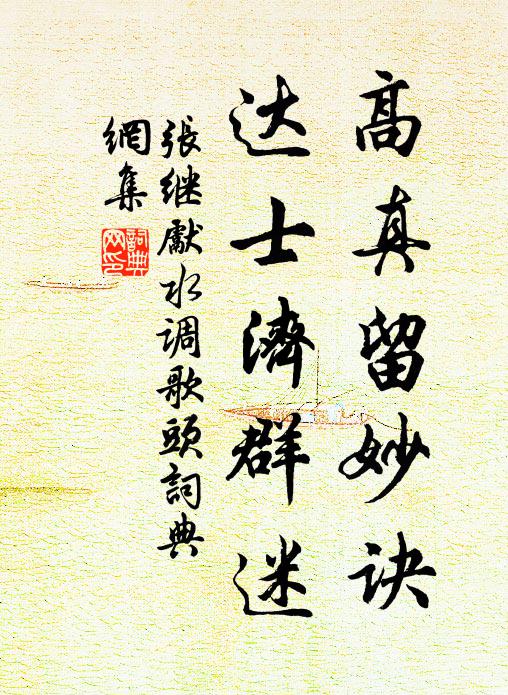 高真留妙诀
达士濟群迷
張继獻水调歌頭詞典
網集
詞典
网印